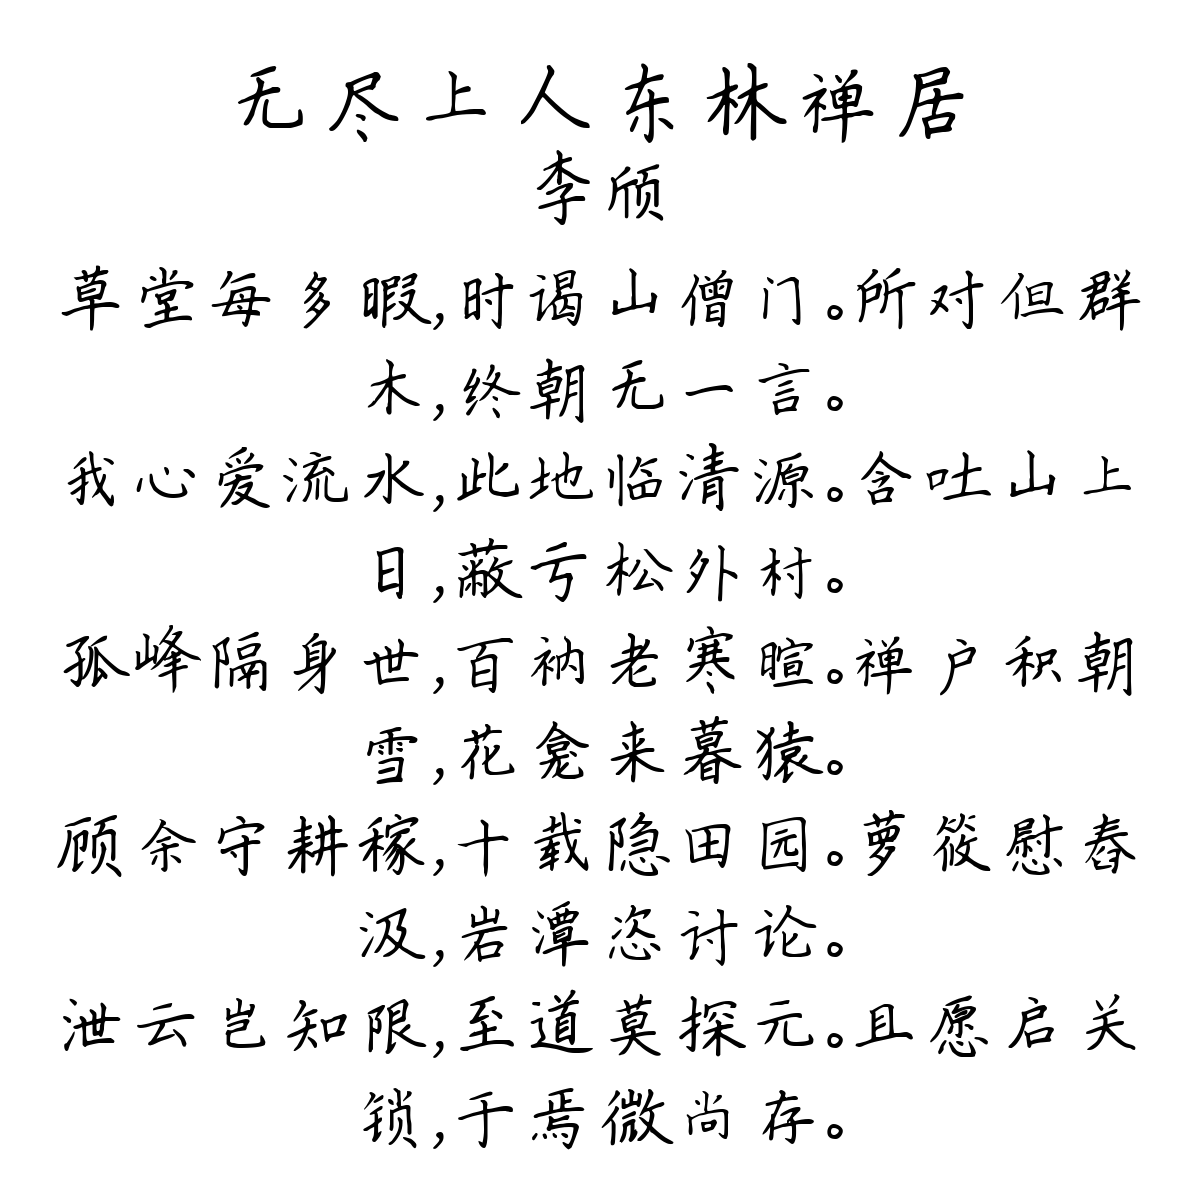 无尽上人东林禅居
李颀
草堂每多暇,时谒山僧门。所对但群
木,终朝无一言。
我心爱流水,此地临清源。含吐山上
日,蔽亏松外村。
孤峰隔身世,百衲老寒暄。禅户积朝
雪,花龛来暮猿。
顾余守耕稼,十载隐田园。萝筱慰舂
汲,岩潭恣讨论。
泄云岂知限,至道莫探元。且愿启关
锁,于焉微尚存。